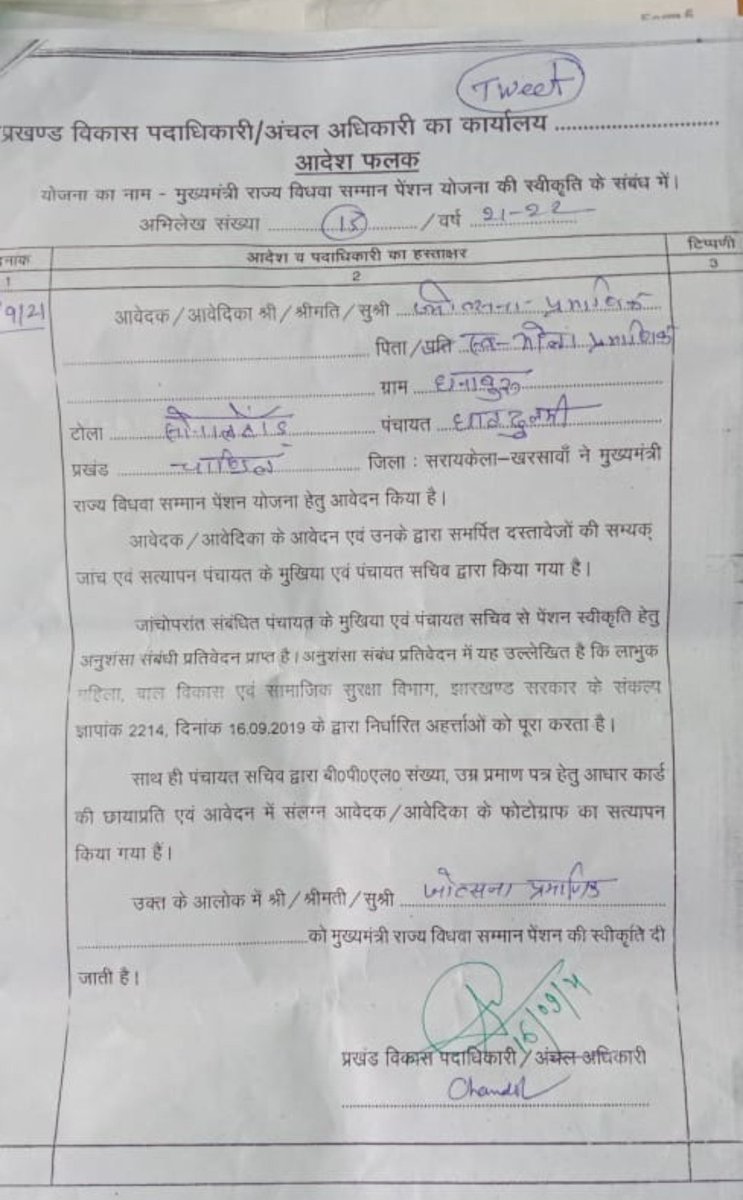 Tweet
प्रखण्ड विकास पदाधिकारी/अंचल अधिकारी का कार्यालय ............................
आदेश फलक
योजना का नाम - मुख्यमंत्री राज्य विधवा सम्मान पेंशन योजना की स्वीकृति के संबंध में।
अभिलेख संख्या ........................ / वर्ष 21-22
आदेश व पदाधिकारी का हस्ताक्षर टिप्पणी
1 2 3
9/21 आवेदक / आवेदिका श्री / श्रीमति / सुश्री ज्योत्सना प्रमाणिक
पिता / प्रति स्व- प्रमाणिक
ग्राम
टोला पंचायत
प्रखंड चाण्डिल जिला : सरायकेला-खरसावाँ ने मुख्यमंत्री
राज्य विधवा सम्मान पेंशन योजना हेतु आवेदन किया है।
आवेदक / आवेदिका के आवेदन एवं उनके द्वारा समर्पित दस्तावेजों की सम्यक्
जांच एवं सत्यापन पंचायत के मुखिया एवं पंचायत सचिव द्वारा किया गया है।
जांचोपरांत संबंधित पंचायत के मुखिया एवं पंचायत सचिव से पेंशन स्वीकृति हेतु
अनुशंसा संबंधी प्रतिवेदन प्राप्त है। अनुशंसा संबंध प्रतिवेदन में यह उल्लेखित है कि लाभुक
महिला, बाल विकास एवं सामाजिक सुरक्षा विभाग, झारखण्ड सरकार के संकल्प
ज्ञापांक 2214, दिनांक 16.09.2019 के द्वारा निर्धारित अहर्त्ताओं को पूरा करता है।
साथ ही पंचायत सचिव द्वारा बी०पी०एल० संख्या, उम्र प्रमाण पत्र हेतु आधार कार्ड
की छायाप्रति एवं आवेदन में संलग्न आवेदक / आवेदिका के फोटोग्राफ का सत्यापन
किया गया हैं।
उक्त के आलोक में श्री / श्रीमती / सुश्री जोत्सना प्रमाणिक
............................को मुख्यमंत्री राज्य विधवा सम्मान पेंशन की स्वीकृति दी
जाती है।
16/09/21
प्रखंड विकास पदाधिकारी / अंचल अधिकारी
Chandil